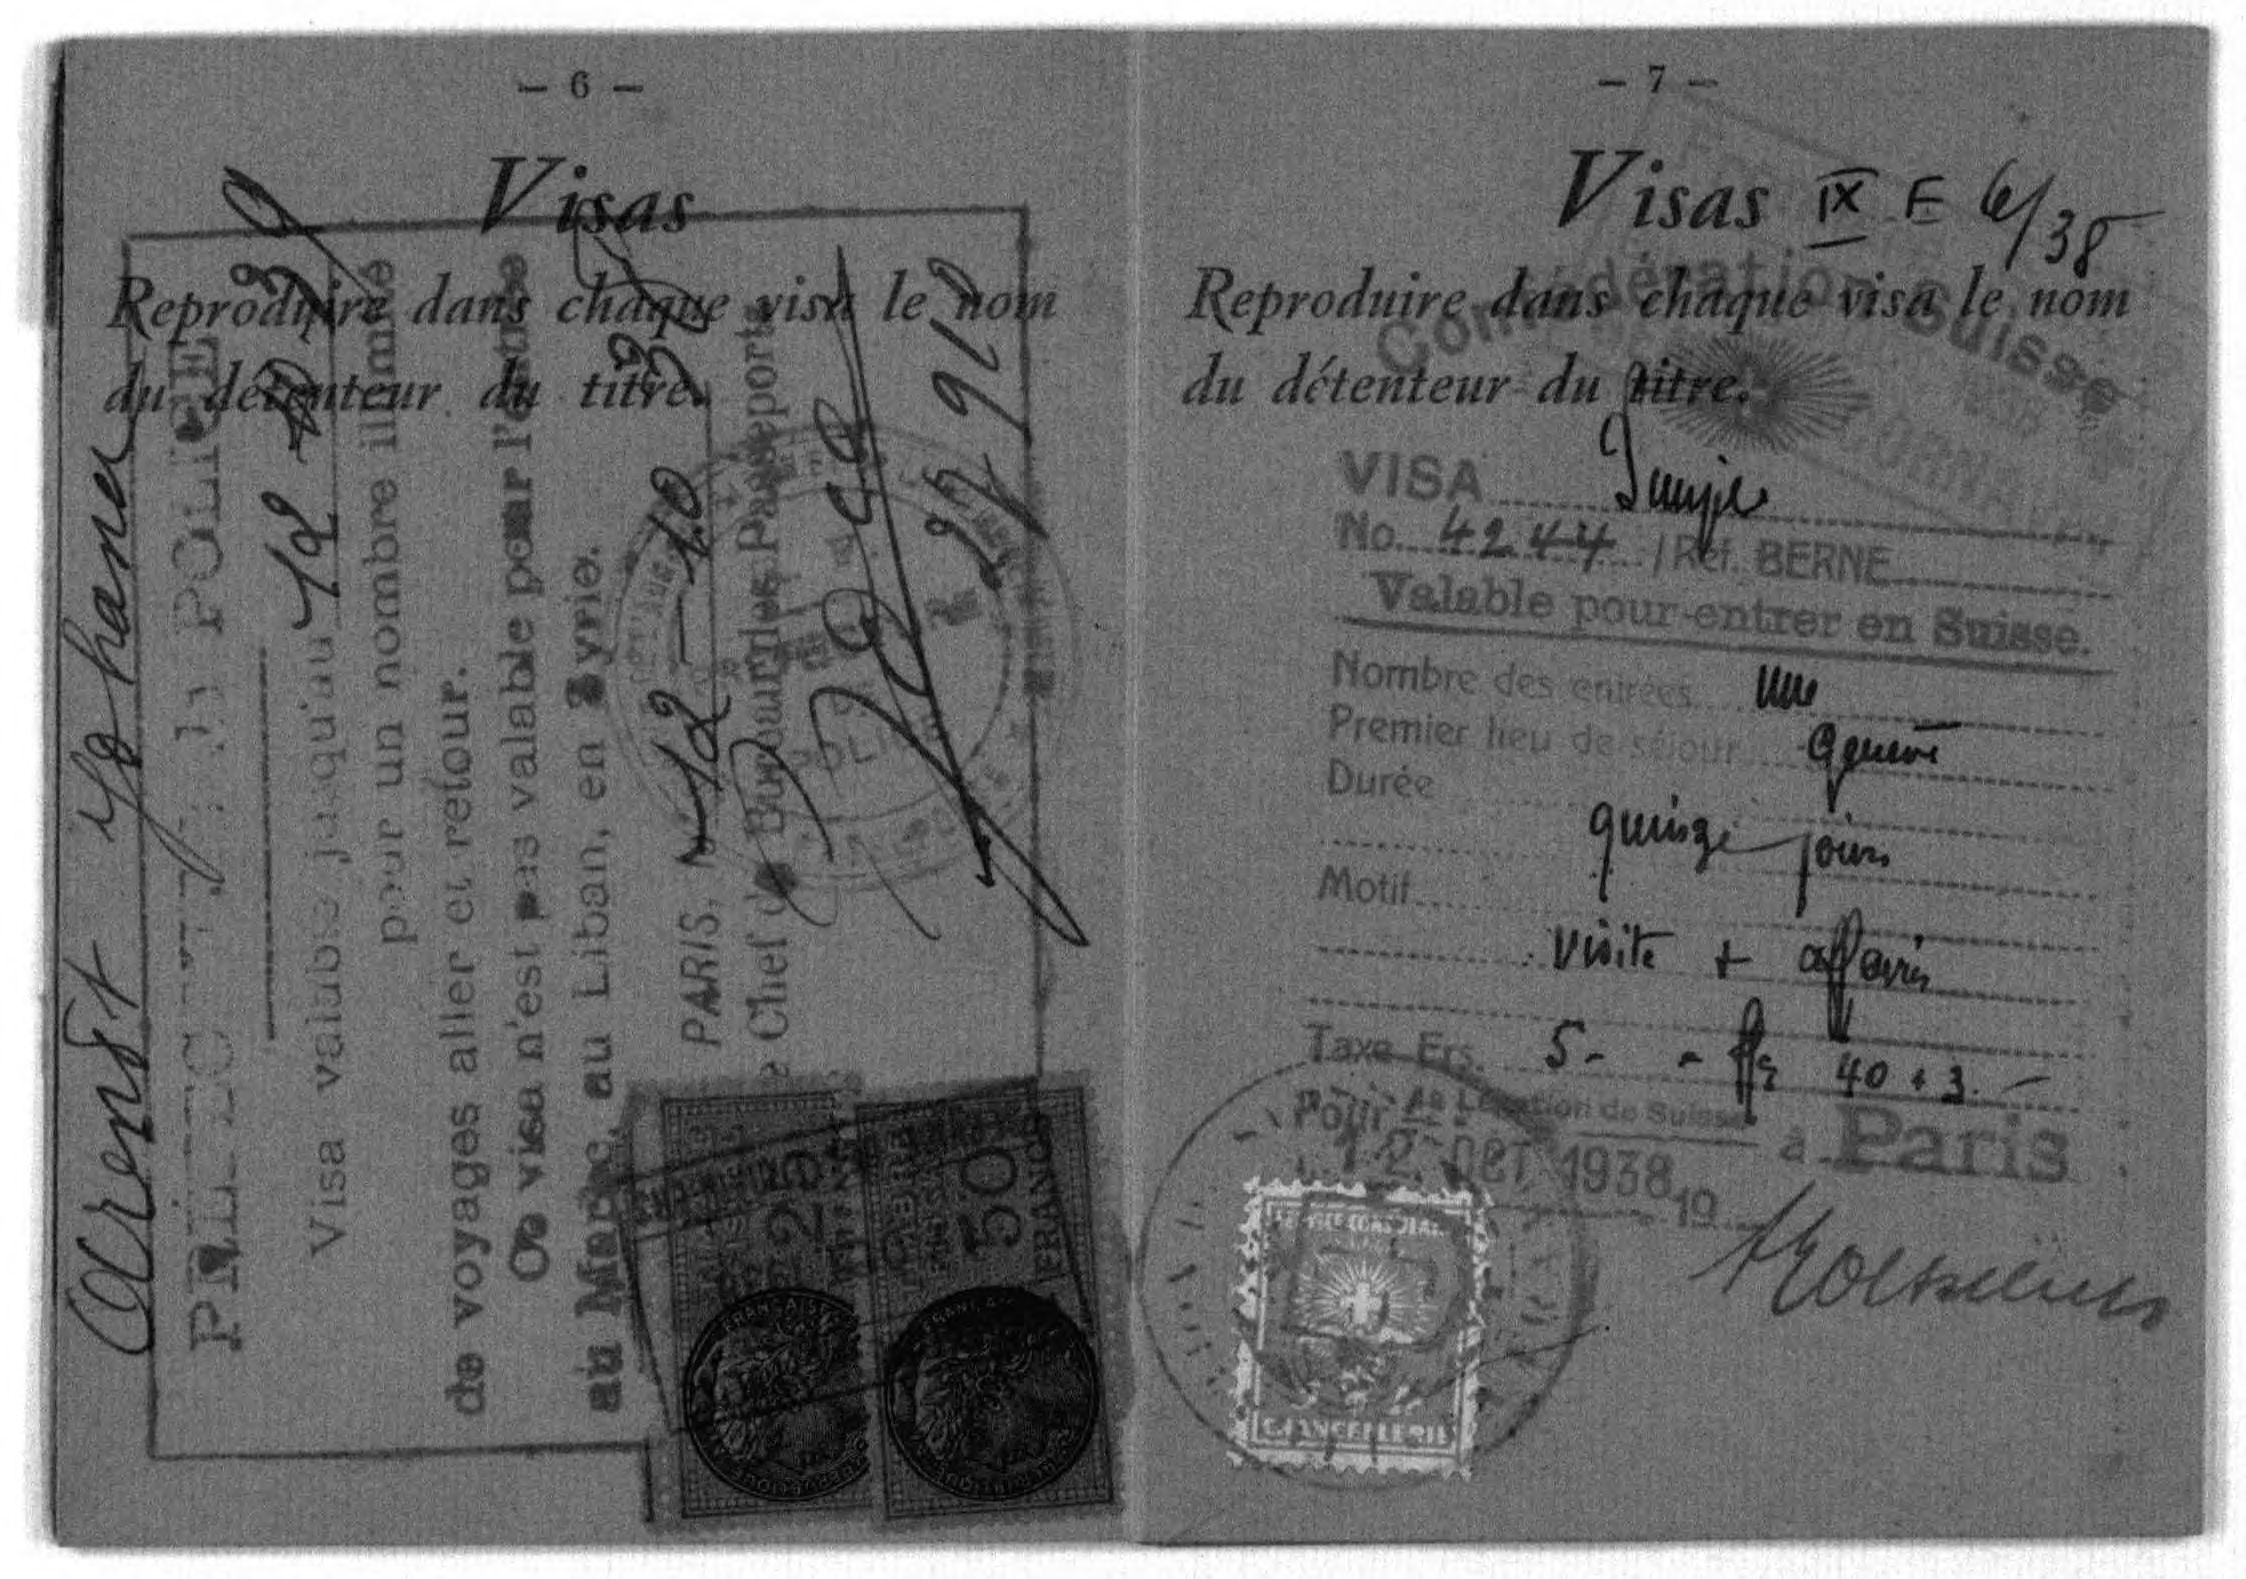 — 6 —
Visas
Reproduire dans chaque visa le nom
du détenteur du titre.
Arendt Johana
PRÉFECTURE DE POLICE
Visa valable jusqu'au 12
pour un nombre illimité
de voyages aller et retour.
Ce visa n'est pas valable pour l'entrée
au Maroc, au Liban, en Syrie.
PARIS, 12-10
Le Chef du Bureau des Passeports
25
50
FRANCS
— 7 —
Visas IX F 6/38
Reproduire dans chaque visa le nom
du détenteur du titre.
Confédération Suisse
VISA Simple
No. 4244 / Réf. BERNE
Valable pour entrer en Suisse.
Nombre des entrées une
Premier lieu de séjour Genève
Durée
quinze jours
Motif
visite + affaires
Taxe Frs. 5- - ffs 40 + 3.-
Pour la Légation de Suisse à Paris
12 OCT 1938 19
SERVICE CONSULAIRE
CHANCELLERIE